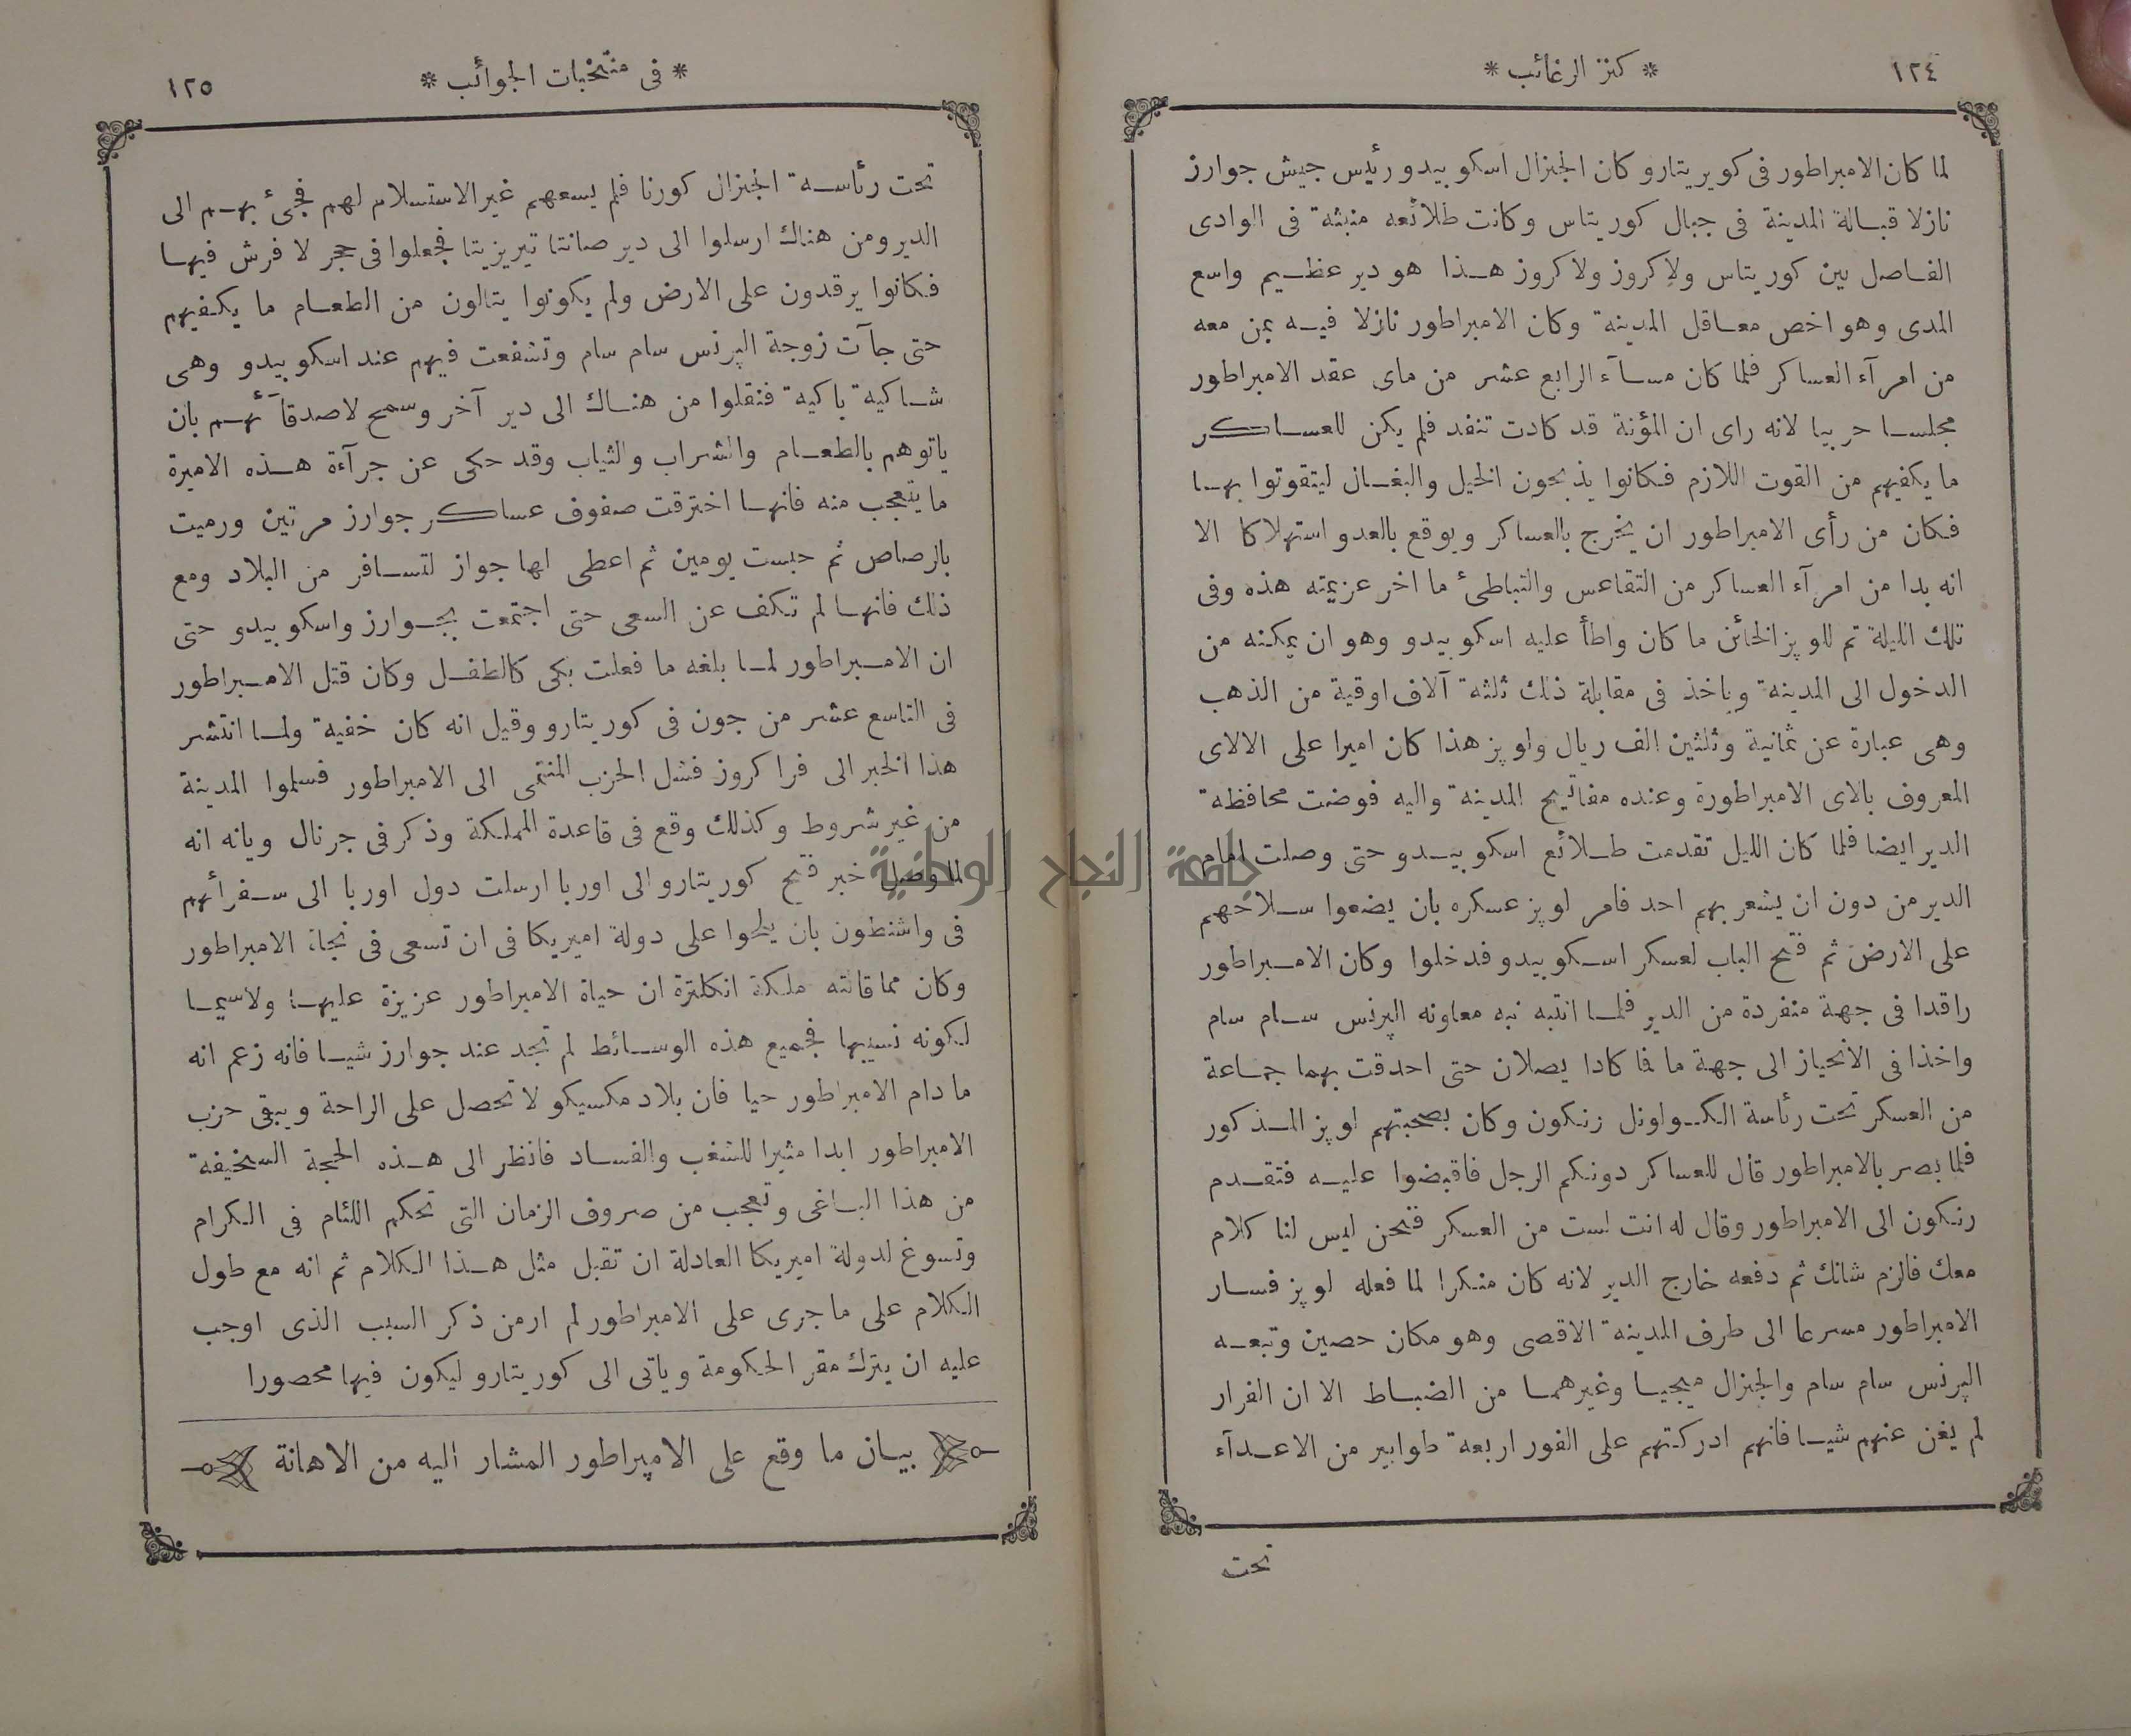 ١٢٤
* كنز الرغائب *
لما كان الامبراطور فى كويريتارو كان الجنرال اسكوبيدو رئيس جيش جوارز
نازلا قبالة المدينة فى جبال كوريتاس وكانت طلائعه منبثة فى الوادى
الفاصل بين كوريتاس ولاكروز ولاكروز هذا هو دير عظيم واسع
المدى وهو اخص معاقل المدينة وكان الامبراطور نازلا فيه بمن معه
من امرآء العساكر فلما كان مسآء الرابع عشر من ماى عقد الامبراطور
مجلسا حربيا لانه راى ان المؤنة قد كادت تنفد فلم يكن للعساكر
ما يكفيهم من القوت اللازم فكانوا يذبحون الخيل والبغال ليتقوتوا بها
فكان من رأى الامبراطور ان يخرج بالعساكر ويوقع بالعدو استهلاكا الا
انه بدا من امرآء العساكر من التقاعس والتباطئ ما اخر عزيمته هذه وفى
تلك الليلة تم للوپز الخائن ما كان واطأ عليه اسكوبيدو وهو ان يمكنه من
الدخول الى المدينة وياخذ فى مقابلة ذلك ثلثة آلاف اوقية من الذهب
وهى عبارة عن ثمانية وثلثين الف ريال ولوپز هذا كان اميرا على الالاى
المعروف بالاى الامبراطورة وعنده مفاتيح المدينة واليه فوضت محافظة
الدير ايضا فلما كان الليل تقدمت طلائع اسكوبيدو حتى وصلت امام
الدير من دون ان يشعر بهم احد فامر لوپز عسكره بان يضعوا سلاحهم
على الارض ثم فتح الباب لعسكر اسكوبيدو فدخلوا وكان الامبراطور
راقدا فى جهة منفردة من الدير فلما انتبه نبه معاونه الپرنس سام سام
واخذا فى الانحياز الى جهة ما فا كادا يصلان حتى احدقت بهما جماعة
من العسكر تحت رئاسة الكولونل رنكون وكان بصحبتهم لوپز المذكور
فلما بصر بالامبراطور قال للعساكر دونكم الرجل فاقبضوا عليه فتقدم
رنكون الى الامبراطور وقال له انت لست من العسكر فنحن ليس لنا كلام
معك فالزم شانك ثم دفعه خارج الدير لانه كان منكرا لما فعله لوپز فسار
الامبراطور مسرعا الى طرف المدينة الاقصى وهو مكان حصين وتبعه
الپرنس سام سام والجنرال ميجيا وغيرهما من الضباط الا ان الفرار
لم يغن عنهم شيا فانهم ادركتهم على الفور اربعة طوابير من الاعدآء
تحت
* فى منتخبات الجوائب *
١٢٥
تحت رئاسة الجنرال كورنا فلم يسعهم غير الاستسلام لهم فجئ بهم الى
الدير ومن هناك ارسلوا الى دير صانتا تيريزيتا فجعلوا فى حجر لا فرش فيها
فكانوا يرقدون على الارض ولم يكونوا ينالون من الطعام ما يكفيهم
حتى جآت زوجة الپرنس سام سام وتشفعت فيهم عند اسكوبيدو وهى
شاكية باكية فنقلوا من هناك الى دير آخر وسمح لاصدقآئهم بان
ياتوهم بالطعام والشراب والثياب وقد حكى عن جرآءة هذه الاميرة
ما يتعجب منه فانها اخترقت صفوف عساكر جوارز مرتين ورميت
بالرصاص ثم حبست يومين ثم اعطى لها جواز لتسافر من البلاد ومع
ذلك فانها لم تكف عن السعى حتى اجتمعت بجوارز واسكوبيدو حتى
ان الامبراطور لما بلغه ما فعلت بكى كالطفل وكان قتل الامبراطور
فى التاسع عشر من جون فى كوريتارو وقيل انه كان خفية ولما انتشر
هذا الخبر الى فراكروز فشل الحزب المنتمى الى الامبراطور فسلموا المدينة
من غير شروط وكذلك وقع فى قاعدة المملكة وذكر فى جرنال ويانه انه
لما وصل خبر فتح كوريتارو الى اوربا ارسلت دول اوربا الى سفرائهم
فى واشنطون بان يلحوا على دولة اميريكا فى ان تسعى فى نجاة الامبراطور
وكان مما قالته ملكة انكلترة ان حياة الامبراطور عزيزة عليها ولاسيما
لكونه نسيبها فجميع هذه الوسائط لم تجد عند جوارز شيا فانه زعم انه
ما دام الامبراطور حيا فان بلاد مكسيكو لا تحصل على الراحة ويبقى حزب
الامبراطور ابدا مثيرا للشغب والفساد فانظر الى هذه الحجة السخيفة
من هذا الباغى وتعجب من صروف الزمان التى تحكم اللئام فى الكرام
وتسوغ لدولة اميريكا العادلة ان تقبل مثل هذا الكلام ثم انه مع طول
الكلام على ما جرى على الامبراطور لم ار من ذكر السبب الذى اوجب
عليه ان يترك مقر الحكومة وياتى الى كوريتارو ليكون فيها محصورا
بيان ما وقع على الامپراطور المشار اليه من الاهانة
جامعة النجاح الوطنية